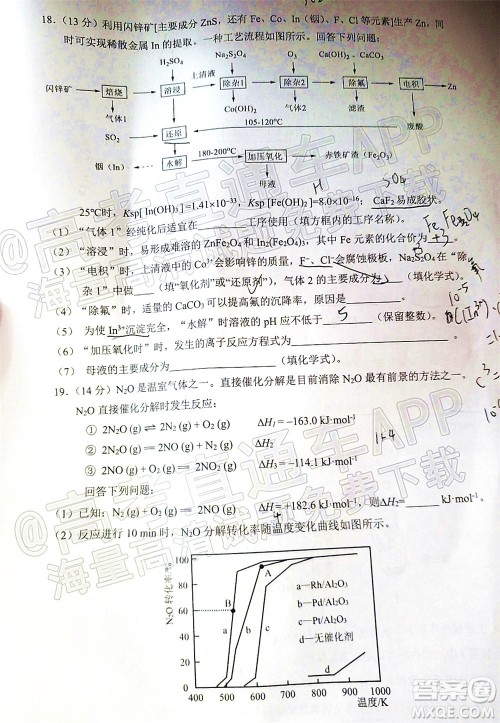 18.（13 分）利用闪锌矿[主要成分 ZnS，还有 Fe、Co、In（铟）、F、Cl 等元素]生产 Zn，同
时可实现稀散金属 In 的提取，一种工艺流程如图所示。回答下列问题：
H₂SO₄ 上清液 Na₂S₂O₈ Zn CaCO₃
闪锌矿 焙烧 溶浸 除杂1 除杂2 除氟 电积 Zn
气体1 Co(OH)₂ 气体2 滤渣 废酸
SO₂ 还原 105-120℃
铟（In） 水解 180-200℃ 加压氧化 赤铁矿渣（Fe₂O₃）
母液
25℃时，Ksp[In(OH)₃]=1.41×10⁻³³，Ksp[Fe(OH)₂]=8.0×10⁻¹⁶；CaF₂易成胶状。
（1）“气体 1”经纯化后适宜在 工序使用（填方框内的工序名称）。
（2）“溶浸”时，易形成难溶的 ZnFe₂O₄ 和 In₂(Fe₂O₄)₃，其中 Fe 元素的化合价为
（3）“电积”时，上清液中的 Co²⁺会影响锌的质量，F⁻、Cl⁻会腐蚀极板，Na₂S₂O₈在“除
杂 1”中做 （填“氧化剂”或“还原剂”），气体 2 的主要成分为 （填化学式）。
（4）“除氟”时，适量的 CaCO₃ 可以提高氟的沉降率，原因是 。
（5）为使 In³⁺沉淀完全，“水解”时溶液的 pH 应不低于 5 （保留整数）。
（6）“加压氧化”时，发生的离子反应方程式为
（7）母液的主要成分为 （填化学式）。
19.（14 分）N₂O 是温室气体之一。直接催化分解是目前消除 N₂O 最有前景的方法之一。
N₂O 直接催化分解时发生反应：
① 2N₂O (g) ⇌ 2N₂ (g) + O₂ (g) ΔH₁= −163.0 kJ·mol⁻¹
② 2N₂O (g) ⇌ 2NO (g) + N₂ (g) ΔH₂
③ 2NO (g) + O₂ (g) ⇌ 2NO₂ (g) ΔH₃= −114.1 kJ·mol⁻¹
回答下列问题：
（1）已知：N₂ (g) + O₂ (g) ⇌ 2NO (g) ΔH=+182.6 kJ·mol⁻¹，则ΔH₂=
（2）反应进行 10 min 时，N₂O 分解转化率随温度变化曲线如图所示。
N₂O 转化率%
100
80
60
40
20
0
A
B
a b c d
a—Rh/Al₂O₃
b—Pd/Al₂O₃
c—Pt/Al₂O₃
d—无催化剂
400 500 600 700 800 900 1000
温度/K